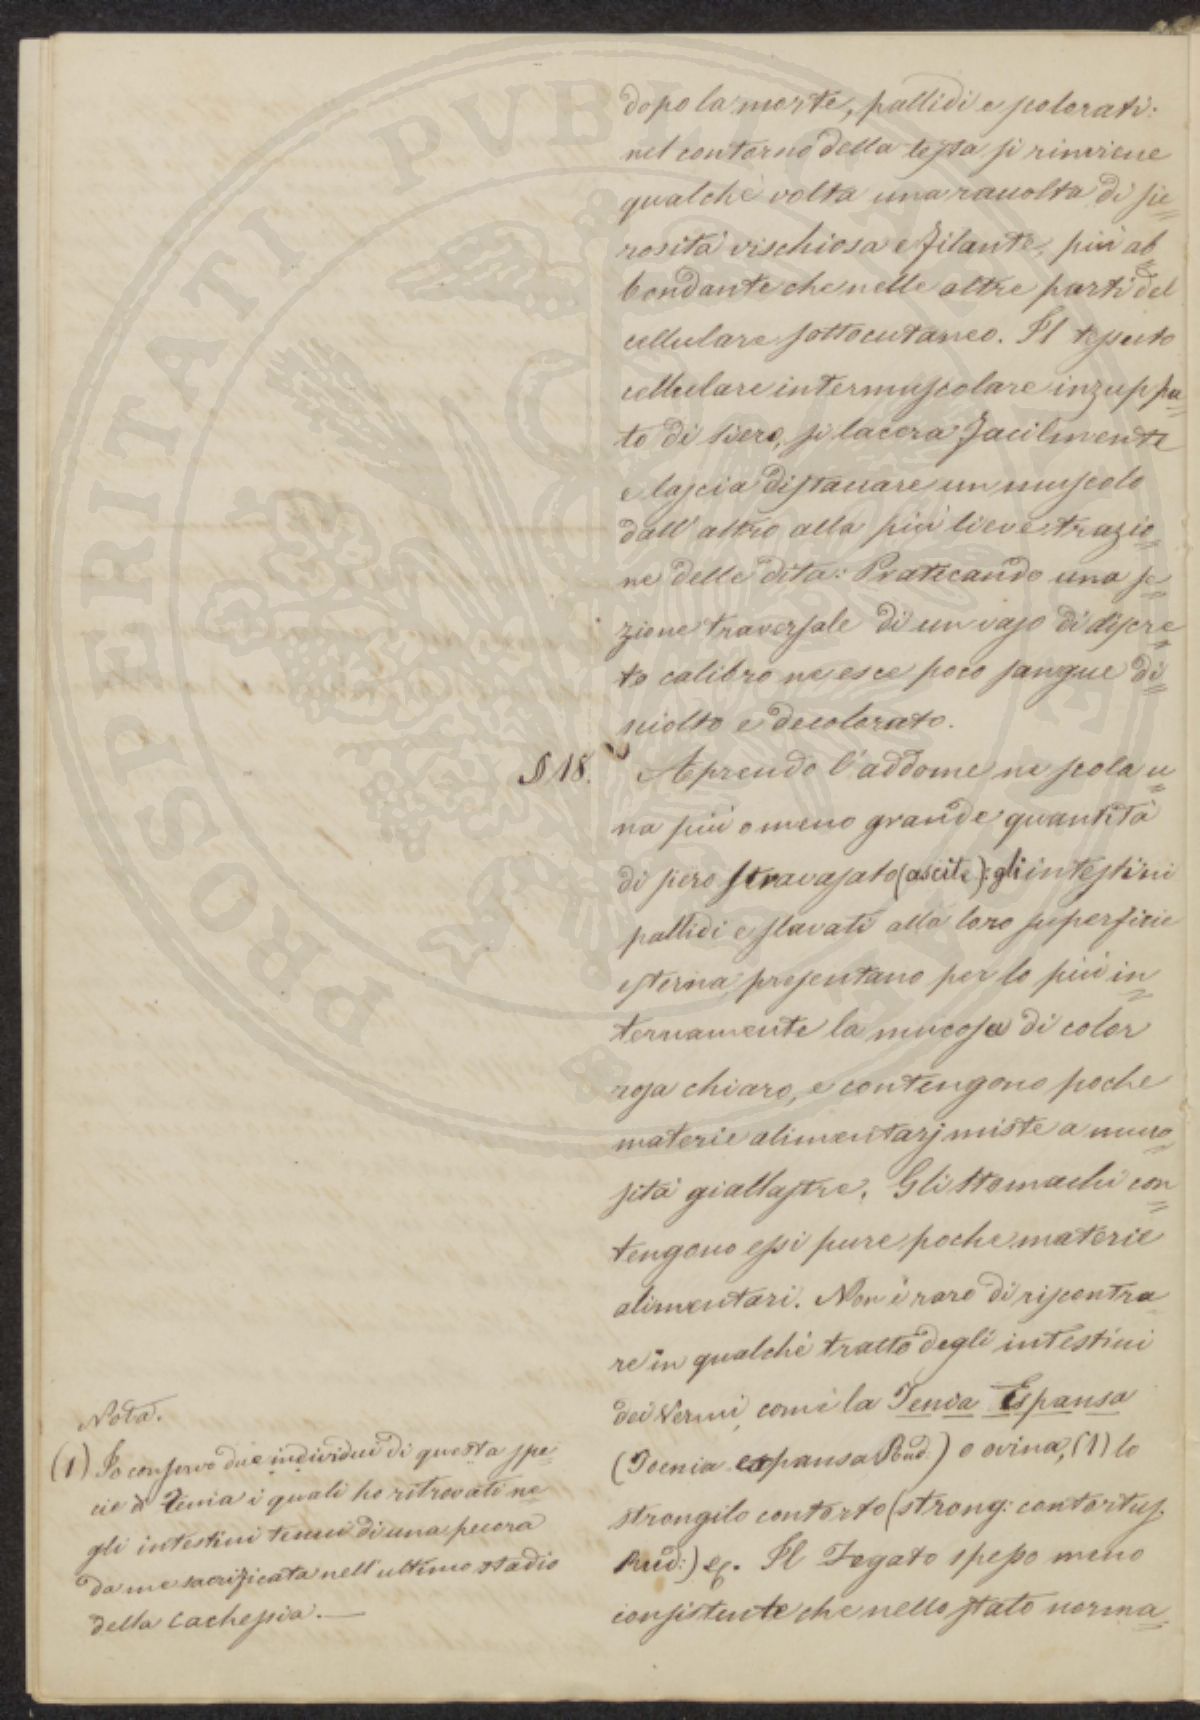 dopo la morte, pallidi e scolorati:
nel contorno della testa si rinviene
qualche volta una raccolta di sie=
rosità vischiosa e filante, più ab=
bondante che nelle altre parti del
cellulare sottocutaneo. Il tessuto
cellulare intermuscolare inzuppa=
to di siero, si lacera facilmente
e lascia distaccare un muscolo
dall'altro alla più lieve trazio=
ne delle dita: Praticando una se=
zione traversale di un vaso di discre=
to calibro ne esce poco sangue di=
sciolto e decolorato.
§ 18. Aprendo l'addome ne scola u=
na più o meno grande quantità
di siero stravasato (ascite): gli intestini
pallidi e slavati alla loro superficie
esterna presentano per lo più in=
ternamente la mucosa di color
rosa chiaro, e contengono poche
materie alimentarj miste a muco=
sità giallastre. Gli stomachi con=
tengono essi pure poche materie
alimentari. Non è raro di riscontra=
re in qualche tratto degli intestini
dei Vermi, come la Tenia Espansa
(Toenia expansa Rud.) o ovina, (1) lo
strongilo contorto (strong: contortus.
Rud:) ec. Il Fegato spesso meno
consistente che nello stato norma=
Nota.
(1) Io conservo due individui di questa spe=
cie di Tenia i quali ho ritrovati ne=
gli intestini tenui di una pecora
da me sacrificata nell'ultimo stadio
della Cachessia.—
PROSPERITATI PVBLICAE